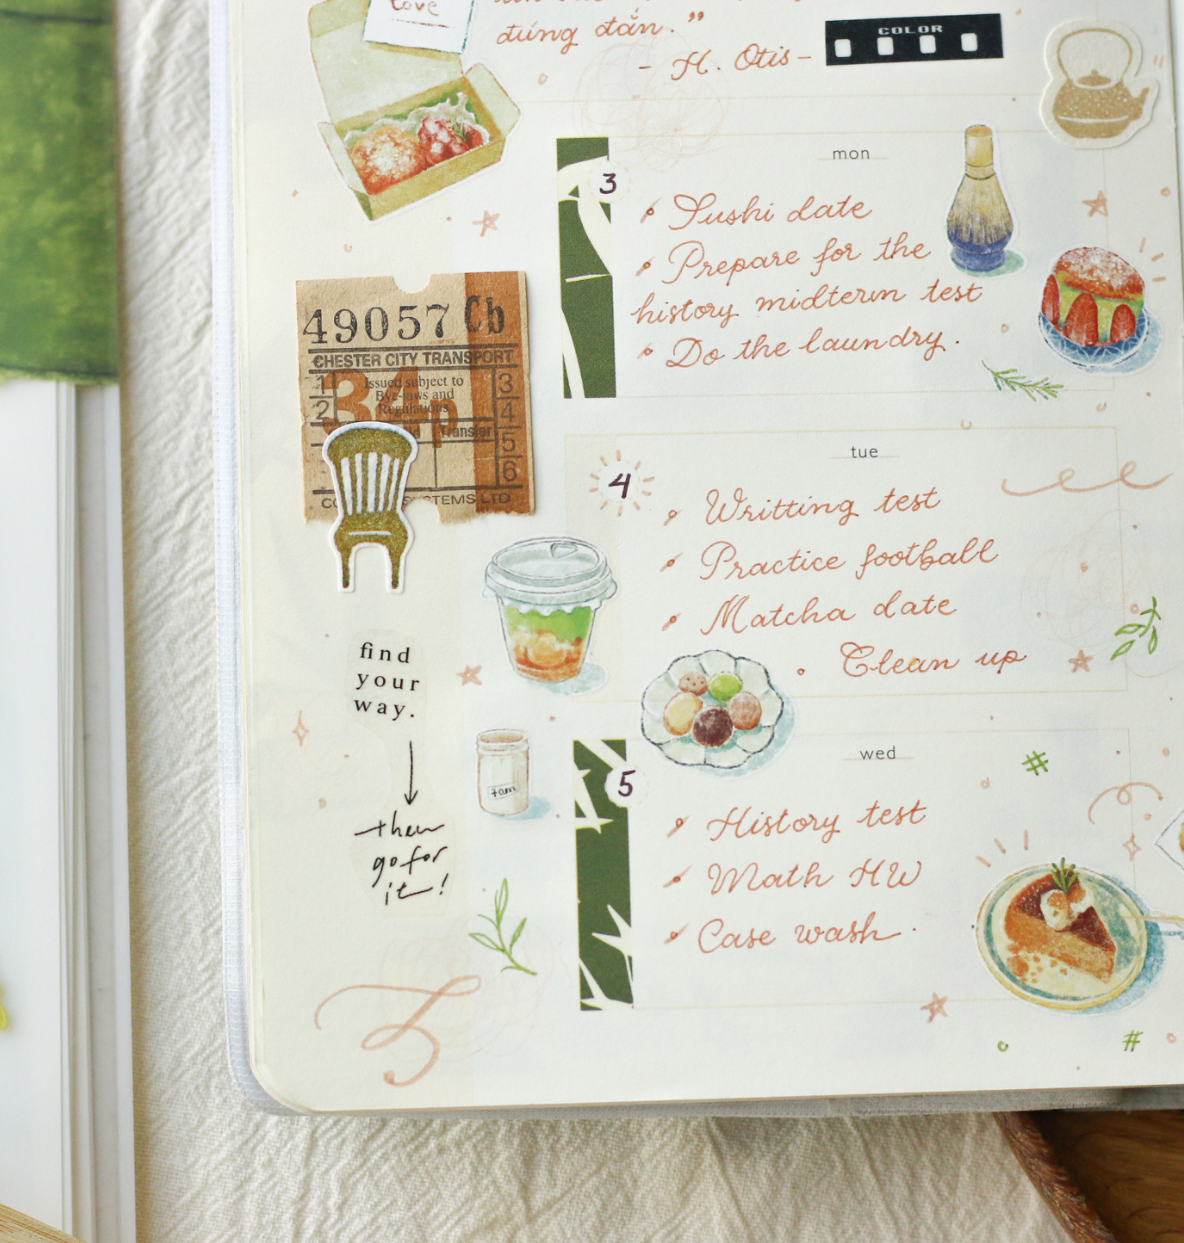 Love
đúng đắn."
- H. Otis -
COLOR
mon
3
Sushi date
Prepare for the
history midterm test
Do the laundry.
49057 Cb
CHESTER CITY TRANSPORT
Issued subject to
Bye-laws and
Regulations
1
2
3
4
5
6
34p
Transfer
tue
4
Writting test
Practice football
Matcha date
Clean up
find
your
way.
then
go for
it!
wed
5
History test
Math HW
Case wash.
#
#